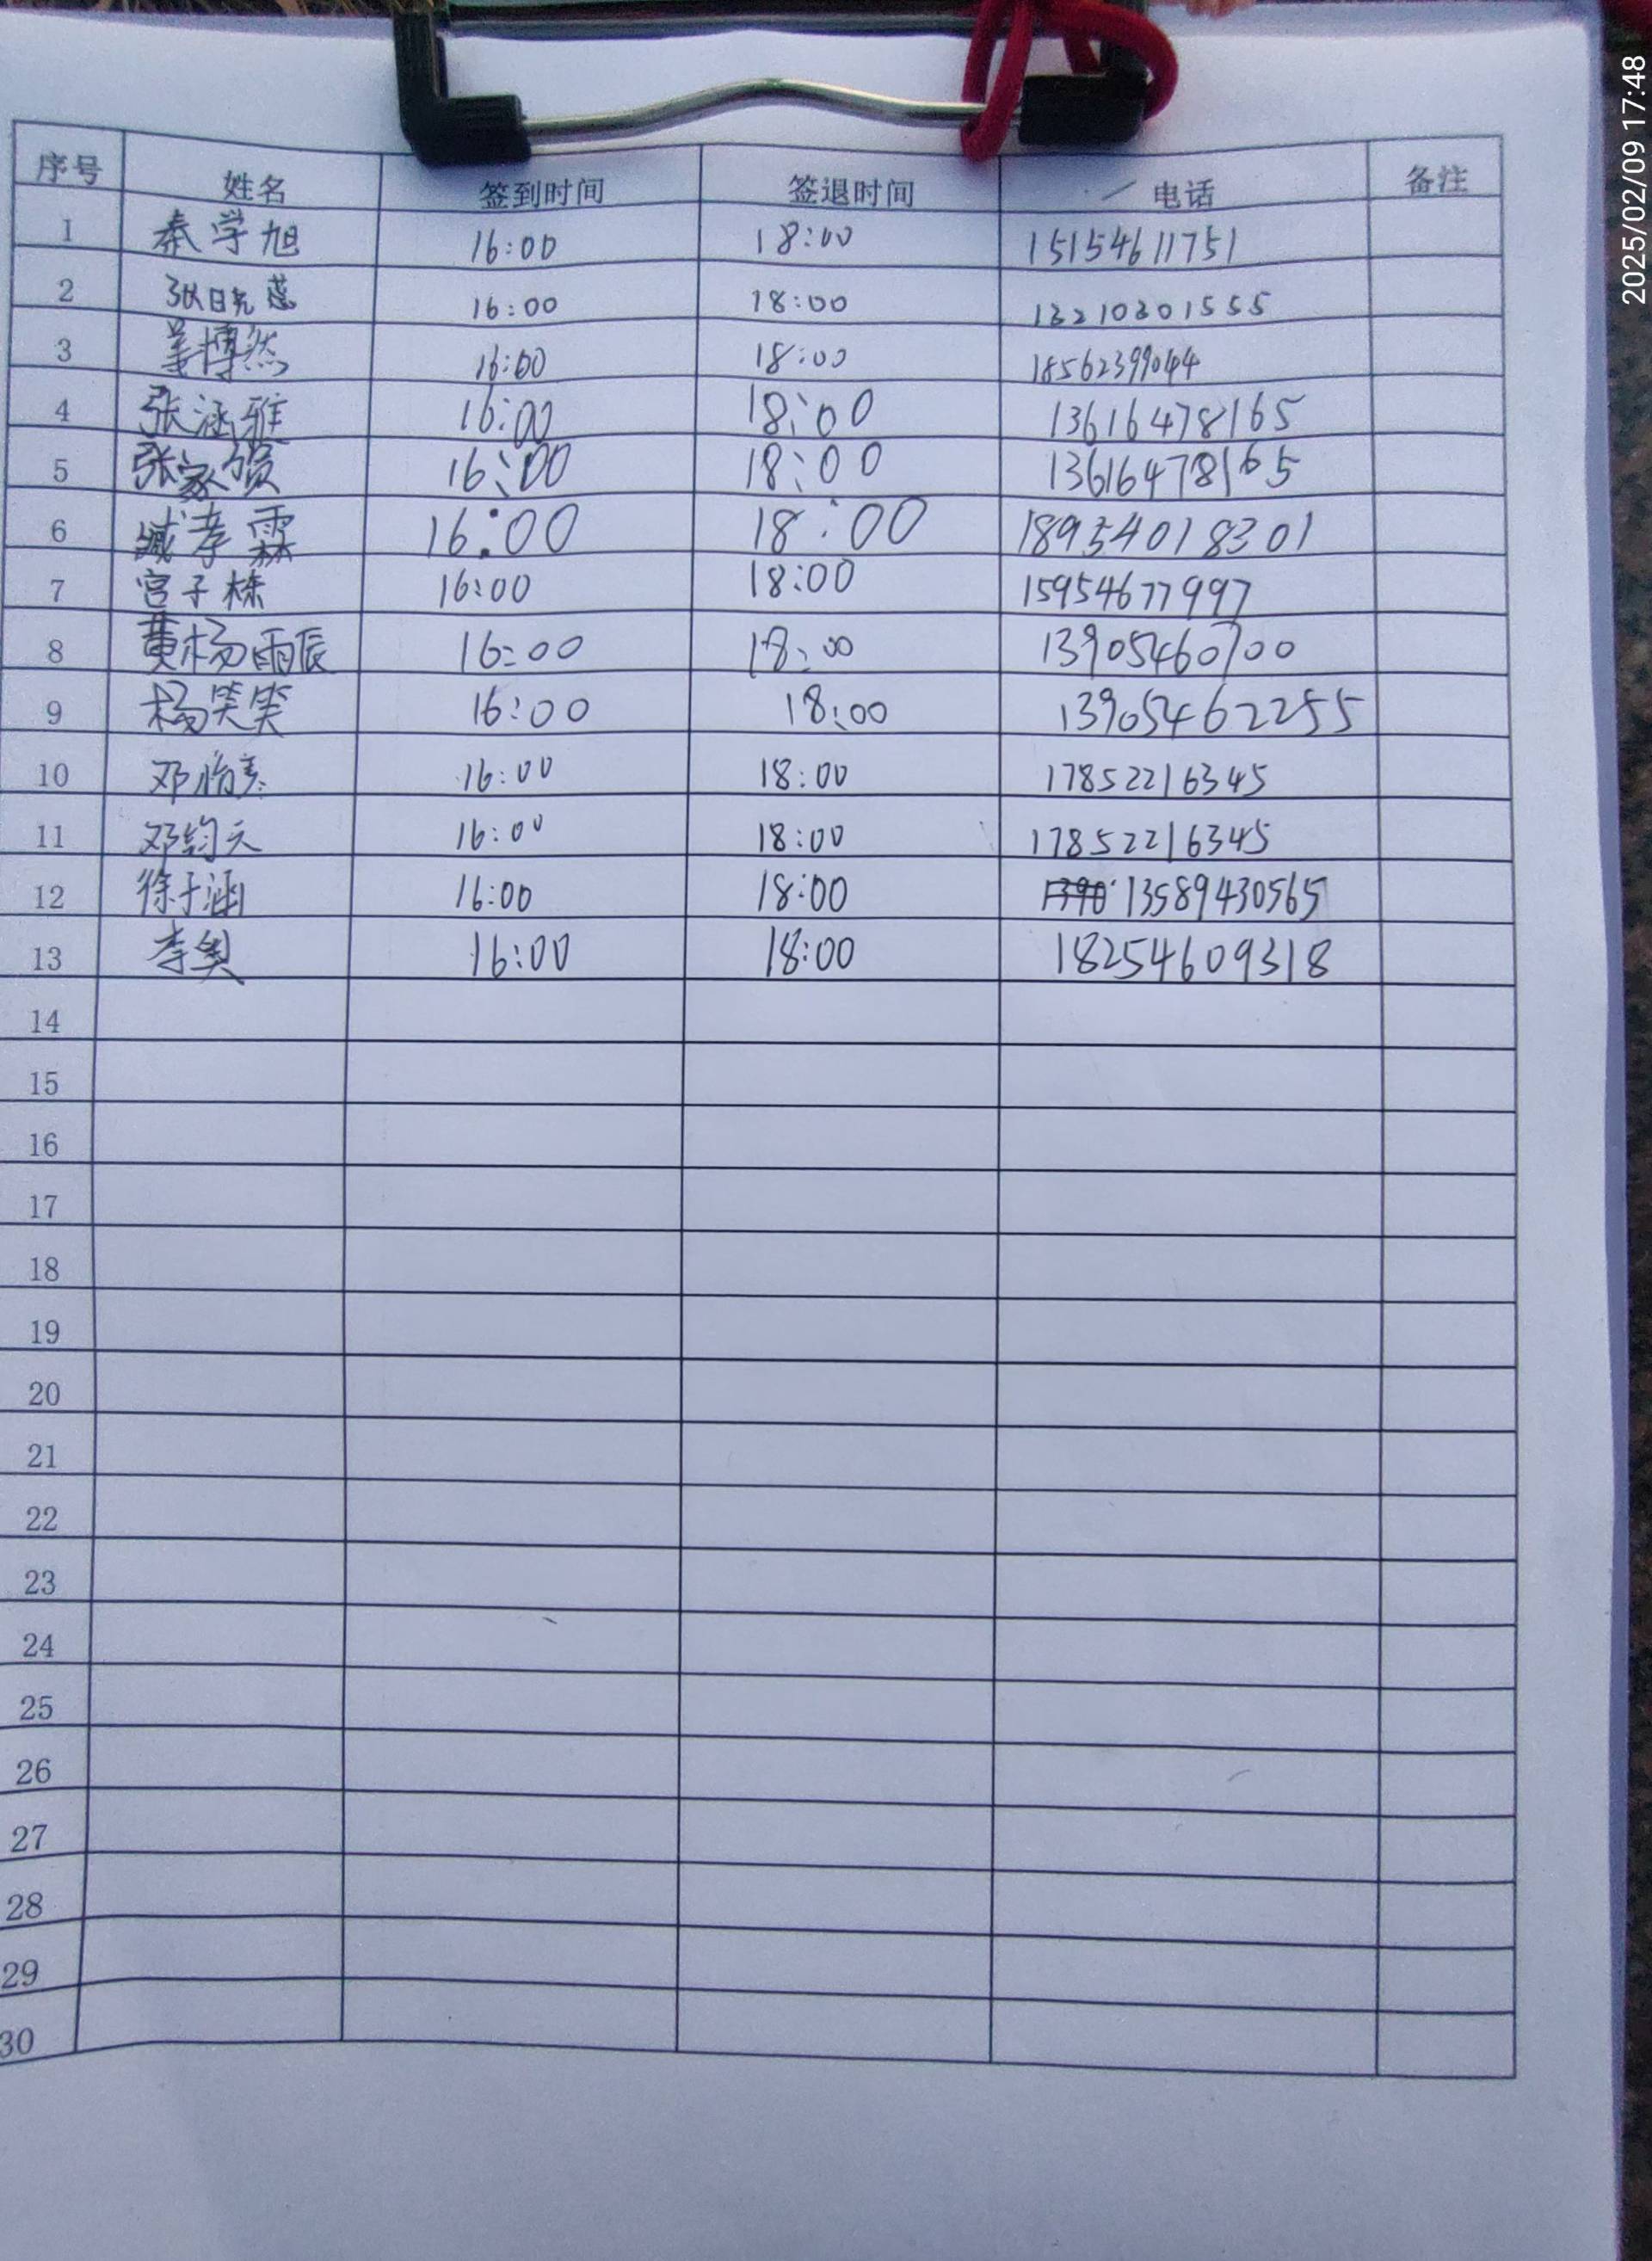 序号 姓名 签到时间 签退时间 电话 备注
1 秦学旭 16:00 18:00 15154611751
2 张晓蕊 16:00 18:00 13210301555
3 姜博然 16:00 18:00 18562399044
4 张涵雅 16:00 18:00 13616478165
5 张家硕 16:00 18:00 13616478165
6 臧孝霖 16:00 18:00 18954018301
7 宫子栋 16:00 18:00 15954677997
8 黄杨雨辰 16:00 18:00 13905460700
9 杨笑笑 16:00 18:00 13905462255
10 邓 16:00 18:00 17852216345
11 邓钧天 16:00 18:00 17852216345
12 徐子涵 16:00 18:00 13589430565
13 李奥 16:00 18:00 18254609318
14
15
16
17
18
19
20
21
22
23
24
25
26
27
28
29
30
2025/02/09 17:48